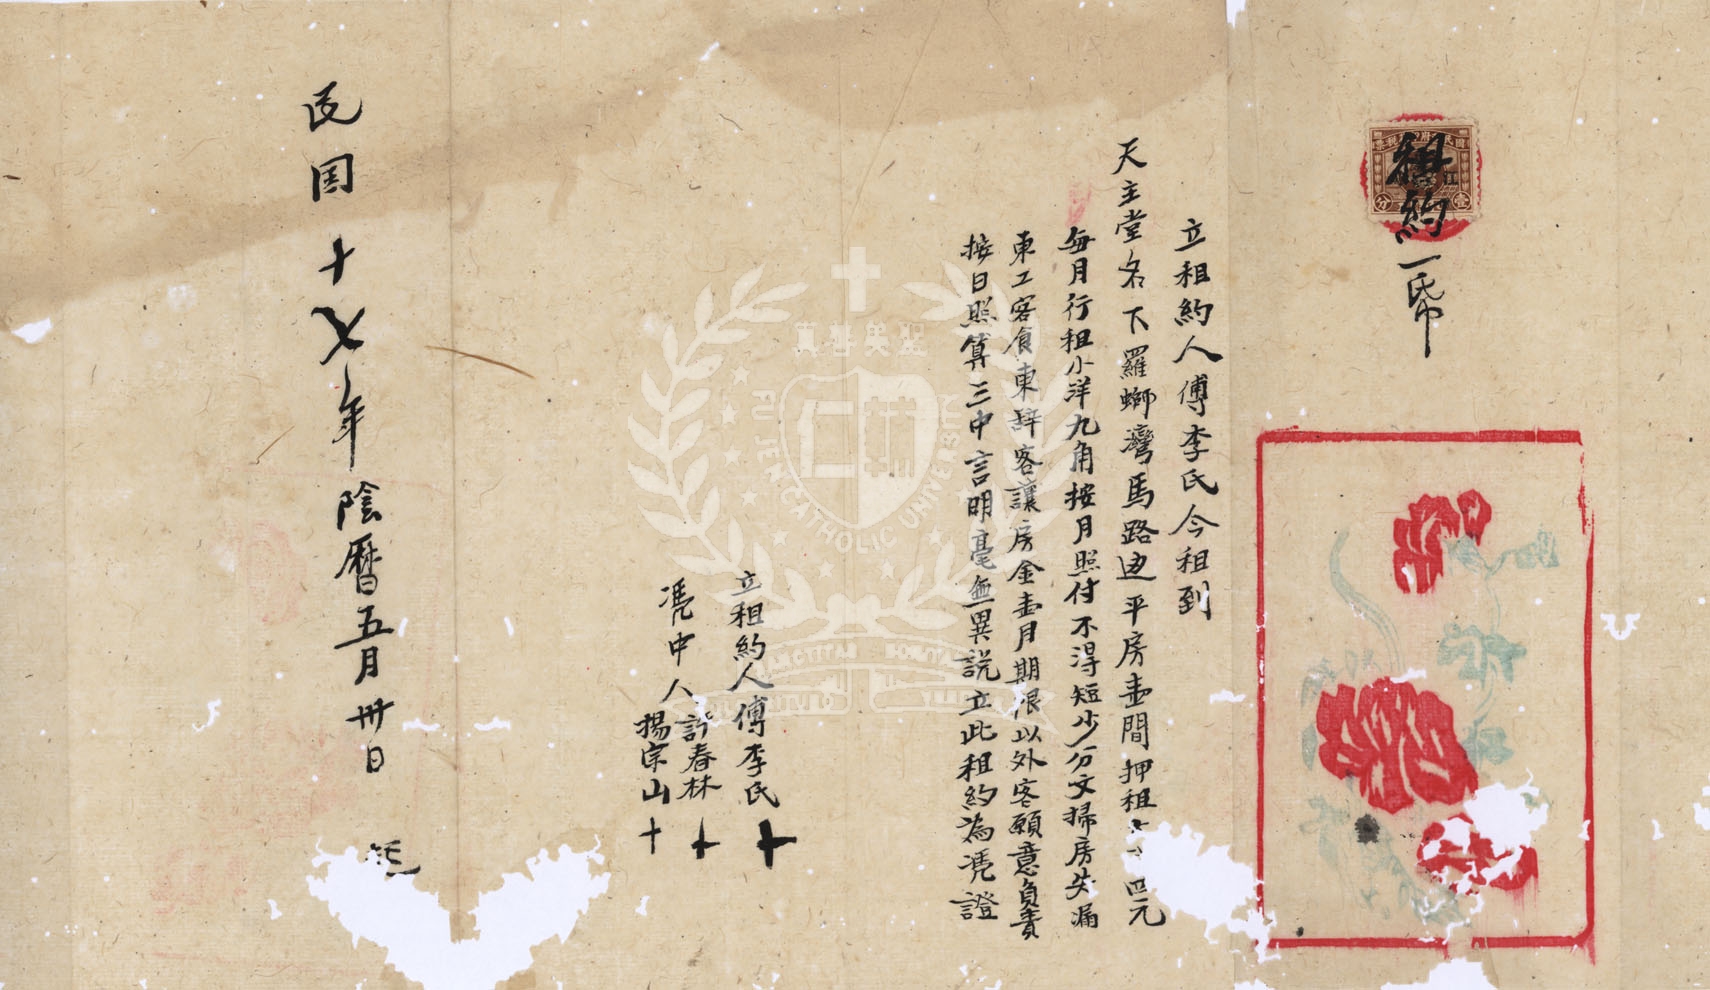 租約一帋
立租約人傅李氏今租到
天主堂名下羅螄灣馬路边平房壹間押租 四元
每月行租小洋九角按月照付不淂短少分文掃房失漏
東工客食東辞客讓房金壹月期限以外客願意負責
按日照算三中言明毫無異説立此租約為凴證
立租約人傅李氏十
凴中人許春林十
揚宗山十
民囯十七年陰曆五月卅日
壹分
聖美善真
FU JEN CATHOLIC UNIVERSITY
SANCTITAS BONITAS